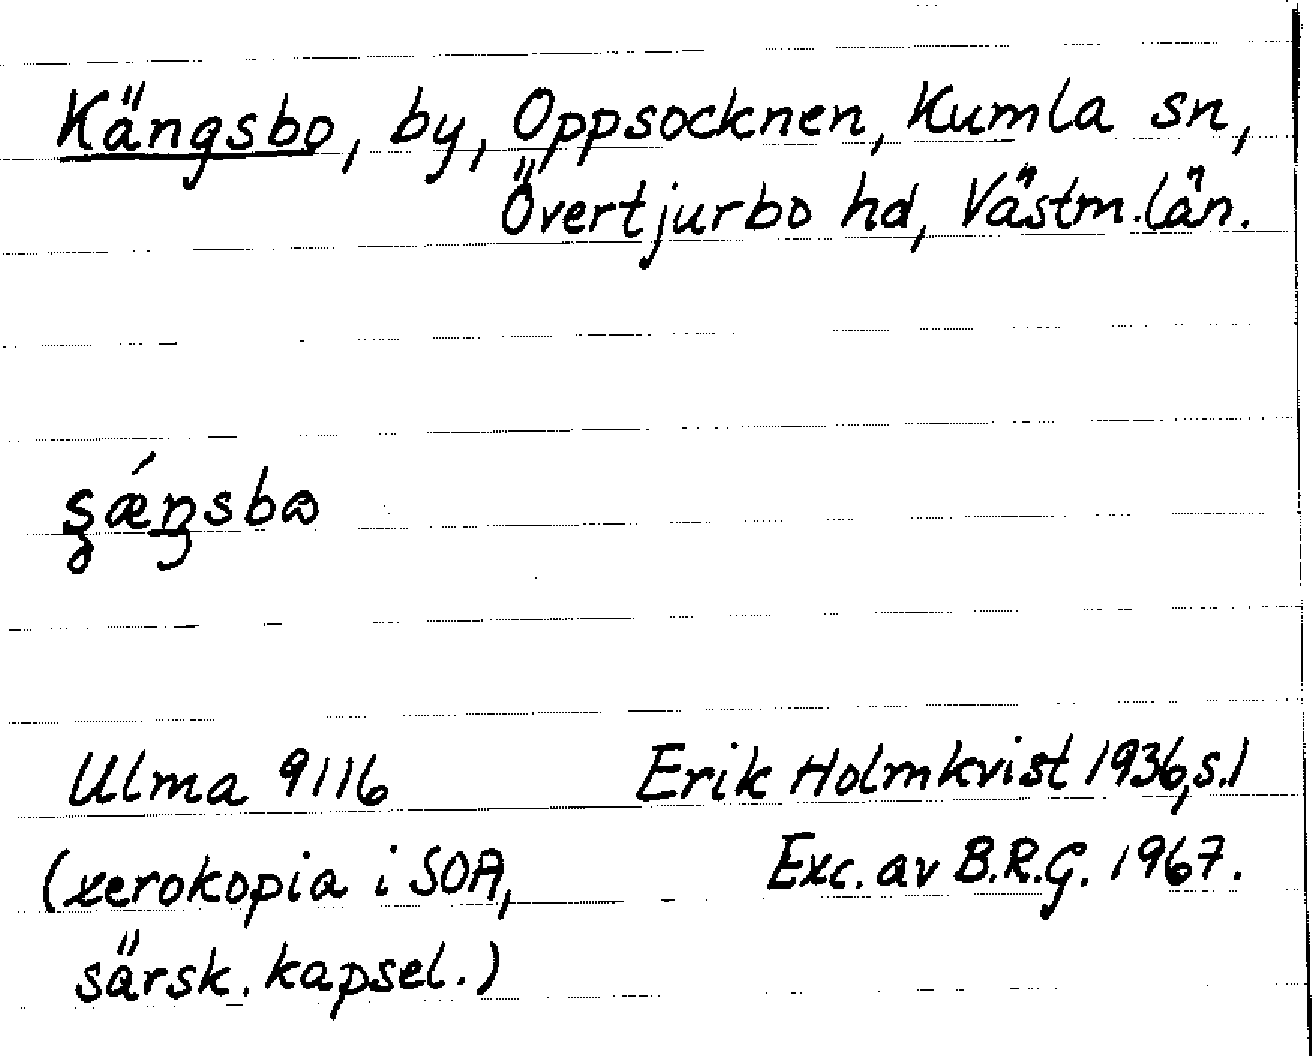 Kängsbo, by, Oppsocknen, Kumla sn,
Övertjurbo hd, Västm. län.
ʂǽŋsbɷ
Ulma 9116 Erik Holmkvist 1936, s.1
(xerokopia i SOA, Exc. av B.R.G. 1967.
särsk. kapsel.)